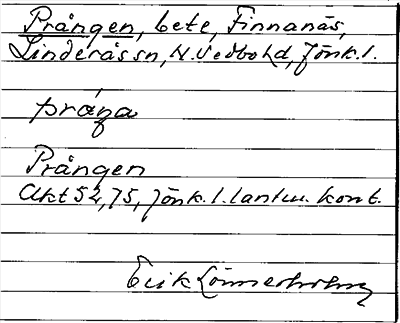 Prången, bete, Finnanäs,
Linderås sn, N. Vedbo hd, Jönk. l.
práŋa
Prången
Akt 52, 75, Jönk. l. lantm. kont.
Erik Lönnerholm